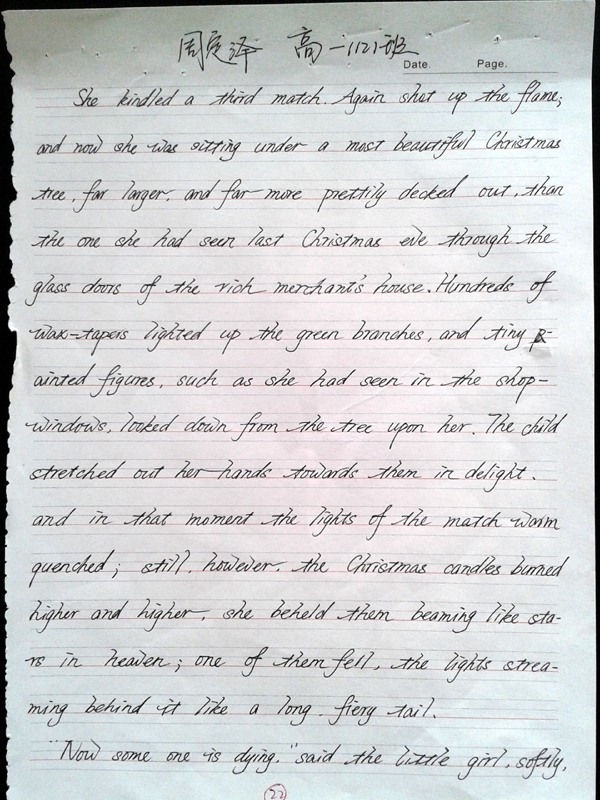 周定泽 高一1121班
Date. Page.
She kindled a third match. Again shot up the flame;
and now she was sitting under a most beautiful Christmas
tree, far larger, and far more prettily decked out, than
the one she had seen last Christmas eve through the
glass doors of the rich merchant's house. Hundreds of
wax-tapers lighted up the green branches, and tiny p-
ainted figures, such as she had seen in the shop-
windows, looked down from the tree upon her. The child
stretched out her hands towards them in delight.
and in that moment the lights of the match warm
quenched; still, however, the Christmas candles burned
higher and higher, she beheld them beaming like sta-
rs in heaven; one of them fell, the lights strea-
ming behind it like a long, fiery tail.
"Now some one is dying," said the little girl, softly,
22